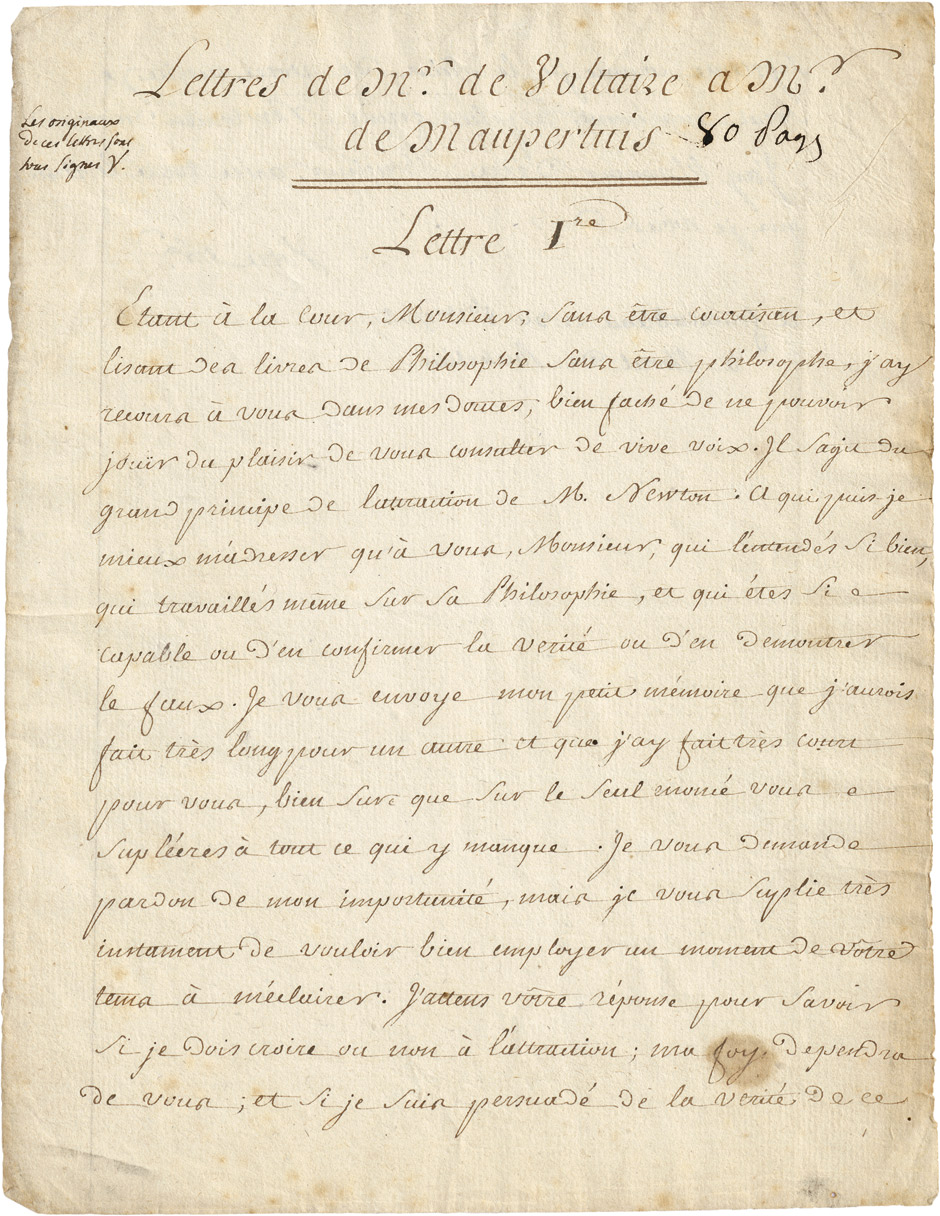 Lettres de Mr. de Voltaire a Mr.
de Maupertuis 80 Pags
Les originaux
De ces lettres sont
tous signes V.
Lettre Ire
Etant à la Cour, Monsieur, sans être courtisan, et
lisant des livres de Philosophie sans être philosophe, j'ay
recours à vous dans mes doutes, bien faché de ne pouvoir
joüir du plaisir de vous consulter de vive voix. Il s'agit du
grand principe de l'attraction de M. Newton. A qui puis-je
mieux m'adresser qu'à vous, Monsieur, qui l'entendés si bien,
qui travaillés même sur sa Philosophie, et qui étes si
capable ou d'en confirmer la verité ou d'en demontrer
le faux. Je vous envoye mon petit mémoire que j'aurois
fait très long pour un autre et que j'ay fait très court
pour vous, bien sur que sur le seul enoncé vous
supléeres à tout ce qui y manque. Je vous demande
pardon de mon importunité, mais je vous suplie très
instament de vouloir bien employer un moment de vôtre
tems à m'éclairer. J'attens vôtre réponse pour savoir
si je dois croire ou non à l'attraction; ma foy dependra
de vous; et si je suis persuadé de la verité de ce